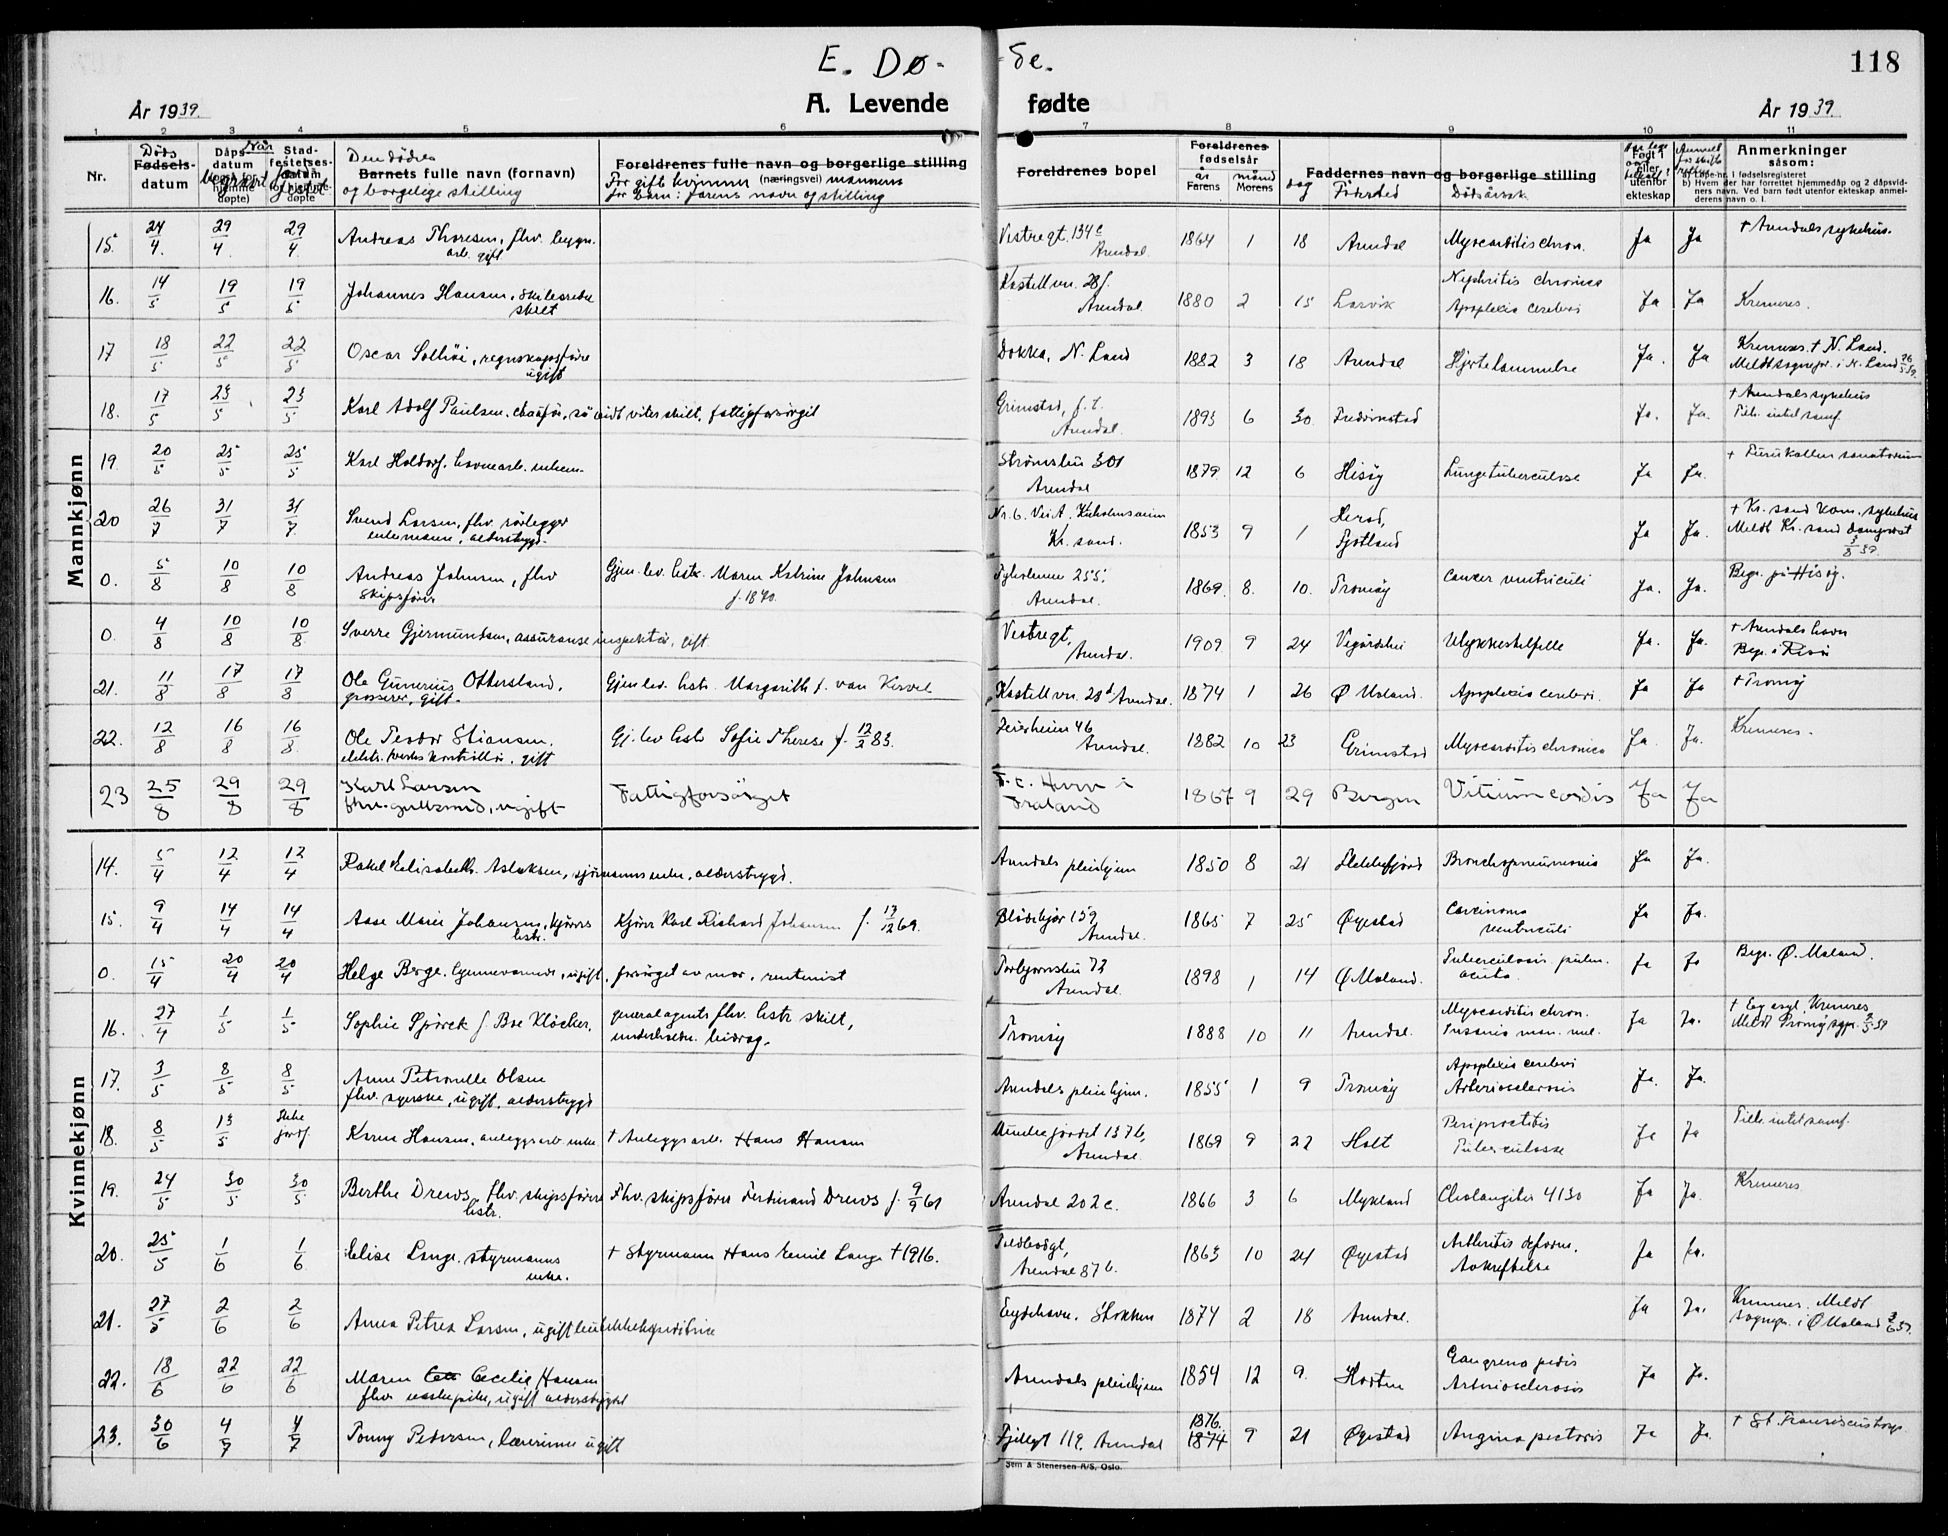 E. Dø- -de.
118
År 1939. A. Levende fødte År 1939.
1 2 3 4 5 6 7 8 9 10 11
Nr. Døds Fødsels-datum Når Dåps-datum (også for hjemme døpte) begravet Stad-festelses-datum for hjemme-døpte jordfestet Den dødes Barnets fulle navn (fornavn) og borgelige stilling Foreldrenes fulle navn og borgerlige stilling (næringsvei) For gifte kvinner mannens for barn: farens navn og stilling Foreldrenes bopel Foreldrenes fødselsår år Farens månd Morens dag Faddernes navn og borgerlige stilling Fødested Dødsårsak Født i eller utenfor ekteskap Anmerkninger såsom:
a) Løpe-nr. i fødselsregisteret
b) Hvem der har forrettet hjemmedåp og 2 dåpsvidners navn. Ved barn født utenfor ekteskap anmelderens navn o. l.
Mannkjønn
15. 24/4. 29/4. 29/4. Andreas Thoresen, fhv. bygn. arb. gift Vestregt. 134c Arendal 1864 1 18 Arendal Myocarditis chron. Ja Ja + Arendals sykehus.
16. 14/5 19/5 19/5 Johannes Hansen, skilt Kastellvn. 28f. Arendal 1880 2 15 Larvik Nephritis chronica Apoplexia cerebri Ja Ja Kremeres.
17 18/5 22/5 22/5 Oscar Solhöi, regnskapsfører ugift Dokka, N. Land 1882 3 18 Arendal Hjertelammelse Ja. Ja Kremeres. + N. Land. Meldt sognepr. i N. Land 26/5 39.
18. 17/5 23/5 23/5 Karl Adolf Paulsen, chauffør, så vidt vites skilt, fattigforsörget Grimstad, f.t. Arendal. 1893 6 30. Fredrikstad Ja. Ja. + Arendals sykehus Tilh. intet samf.
19. 20/5 25/5 25/5 Karl Holdorf. havnearb. enkem. Strømsbu 301 Arendal 1879 12 6 Hisöy Lungetuberculose Ja Ja. + Furukollen sanatorium
20 26/7 31/7 31/7. Svend Larsen, fhv. rörlegger enkemann, alderstrygd. Nr. 6. Vei A. Kr. sand. 1853 9 1 Herad, Fjotland Ja Ja. + Kr. sand kom. sykehus Meldt Kr. sand domprost 3/8 39.
0. 5/8 10/8 10/8 Andreas Johnsen, fhv skipsfører Gjen. lev. hstr. Maren Katrine Johnsen f. 1870. Tyholmen 255, Arendal. 1869. 8. 10. Tromöy Cancer ventriculi Ja. Ja. Begr. på Hisöy.
0. 4/8 10/8 10/8 Sverre Gjermundsen, assuranse inspektör, gift Vestregt, Arendal. 1909 9 24 Vegårdshei Ulykkestilfelle Ja. Ja. + Arendals havn Begr. i Risör
21. 11/8 17/8 17/8 Ole Gunerius Ottersland, grosserer, gift. Gjenlev. hstr. Margarith f. van Kervel Kastellvn. 28d Arendal. 1874 1 26 Ø Moland. Apoplexia cerebri. Ja Ja + Tromöy
22. 12/8 16/8 16/8. Ole Teodor Stiansen, elektr. verkskontrollör. gift Gj. lev hstr Sofie Therese f. 12/2 83. 46 Arendal. 1882 10 23 Grimstad Myocarditis chronica Ja. Ja. Kremeres.
23 25/8 29/8 29/8 Karl Larsen fhv. gullsmed, ugift Fattigforsörget F. c. Hvm i Froland 1867 9 29 Bergen Vitium cordis Ja Ja
Kvinnekjønn
14. 5/4 12/4 12/4 Rakel Elisabeth Aslaksen, sjömanns enke, alderstrygd. Arendals pleiehjem 1850 8 21 Flekkefjord Bronchopneumonia Ja Ja.
15. 9/4 14/4 14/4 Aase Marie Johansen, kjörers hstr. Kjörer Karl Richard Johansen f. 13/12 69. Blödekjær 159 Arendal. 1865 7 25 Øyestad Carcinoma ventriculi Ja Ja.
0. 15/4 20/4 20/4 Helge Berge, hjemmeværende, ugift, forsörget av mor, rentenist Torbjørnsbu 73 Arendal. 1898 1 14 Ø Moland. Tuberculosis pulm. acuta. Ja Ja Begr. Ø. Moland.
16. 27/4 1/5 1/5 Sophie Spörck f. Boe Klöcker, generalagents fhv. hstr skilt, underholdn. bidrag. Tromöy 1888 10 11 Arendal. Myocarditis chron. Insania man. mel. Ja Ja. + Eg asyl. Kremeres Meldt Tromöy sogn. 2/5 39
17. 3/5 8/5 8/5 Anne Petronelle Olsen fhv. syerske, ugift, alderstrygd Arendals pleiehjem. 1855 1 9 Tromöy Apoplexia cerebri Arteriosclerosis Ja. Ja.
18. 8/5 13/5 Ikke jordf. Karen Hansen, anleggsarb. enke + Anleggsarb. Hans Hansen 137b, Arendal. 1869 9 22 Holt Periproctitis Tuberculosa Ja Ja Tilh. intet samf.
19. 24/5 30/5 30/5 Berthe Drews, fhv. skipsförers hstr. Fhv. skipsförer Ferdinand Drews f. 9/9 61 Arendal 202c. 1866 3 6 Mykland Cholangitis 4130 Ja Ja. Kremeres
20. 25/5 1/6 1/6 Elise Lange, styrmanns enke. + Styrmann Hans Emil Lange + 1916. Arendal 87b. 1863 10 24 Øyestad Arthritis deform. Avkreftelse Ja Ja.
21. 27/5 2/6 2/6 Anna Petrea Larsen, ugift butikkekspeditrise Eydehavn. Stokken 1874 2 18 Arendal. Ja Ja. Kremeres. Meldt sognepr. i Ø Moland 3/6 39.
22. 18/6 22/6 22/6 Maren Cecilie Hansen fhv vaskepike, ugift alderstrygdet Arendals pleiehjem 1854 12 9. Horten Gangrena pedis Arteriosclerosis Ja Ja.
23. 30/6 4/7 4/7 Tonny Pedersen, lærerinne ugift Fjellgt 119, Arendal 1876. 1874 9 21 Øyestad Angina pectoris Ja Ja. + St. Franciscushosp.
Sem & Stenersen A/S, Oslo.